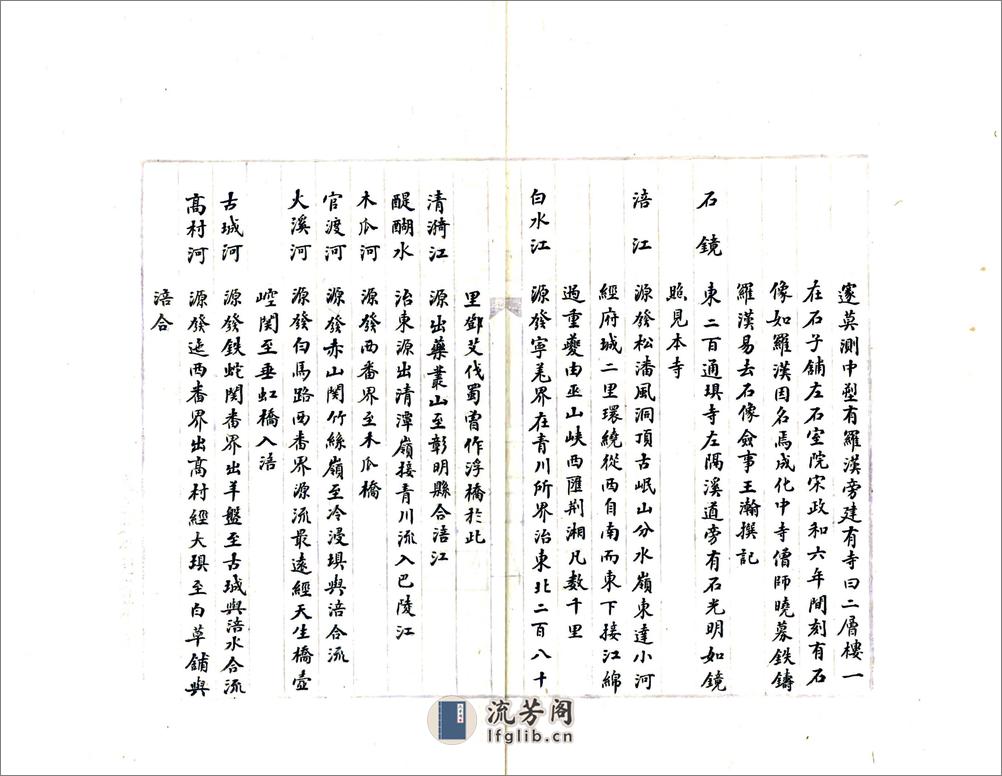 邃莫測中塑有羅漢旁建有寺曰二層樓一
在石子舖左石室院宋政和六年間刻有石
像如羅漢因名焉成化中寺僧師曉募鉄鑄
羅漢易去石像僉事王瀚撰記
石鏡 東二百通垻寺左隅溪道旁有石光明如鏡
照見本寺
涪江 源發松潘風洞頂古岷山分水嶺東達小河
經府城二里環繞從西自南而東下接江綿
過重夔由巫山峽西匯荆湘凡数千里
白水江 源發寧羌界在青川所界治東北二百八十
里鄧艾伐蜀曾作浮橋於此
清漪江 源出藥叢山至彰明縣合涪江
醍醐水 治東源出清潭嶺接青川流入巴陵江
木瓜河 源發西番界至木瓜橋
官渡河 源發赤山関竹絲嶺至冷浸垻與涪合流
火溪河 源發白馬路西番界源流最遠經天生橋壺
崆関至垂虹橋入涪
古城河 源發鉄蛇関番界出羊盤至古城與涪水合流
高村河 源發迤西番界出高村經大垻至白草舖與
涪合
流芳阁
lfglib.cn